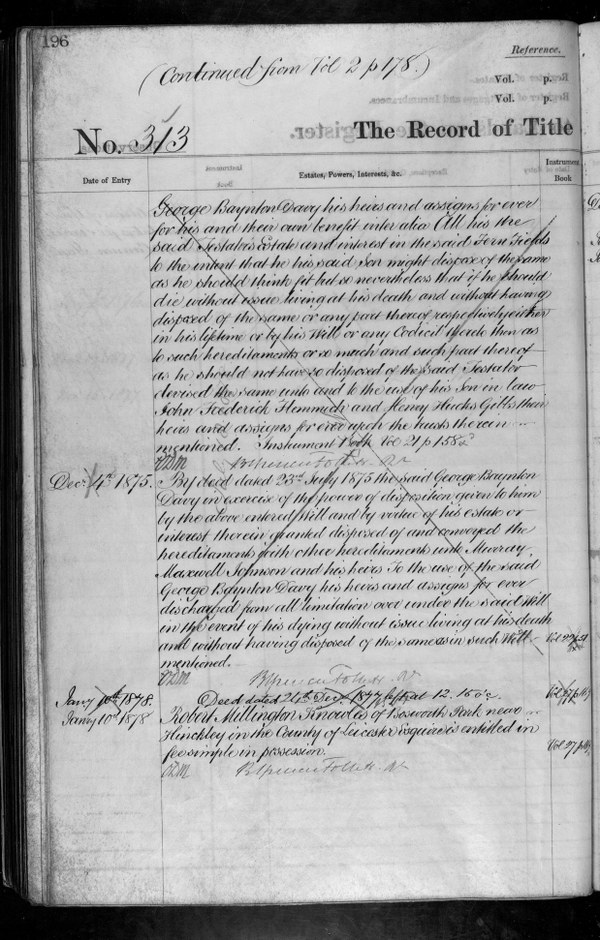 196
Reference.
(Continued from Vol 2 p 178.)
Vol. p.
Vol. p.
No. 313
The Record of Title
Date of Entry
Estates, Powers, Interests, &c.
Instrument
Book
George Baynton Davy his heirs and assigns for ever
for his and their own benefit inter alia All his the
said Testators Estate and interest in the said Fern Fields
to the intent that he his said Son might dispose of the same
as he should think fit but so nevertheless that if he should
die without issue living at his death and without having
disposed of the same or any part thereof respectively either
in his lifetime or by his Will or any Codicil thereto then as
to such hereditaments or so much and such part thereof
as he should not have so disposed of the said Testator
devised the same unto and to the use of his Son in law
John Frederick Flemmich and Henry Hucks Gibbs their
heirs and assigns for ever upon the trusts therein
mentioned. Instrument Book Vol 21 p 158
Decr. 4th 1875.
By deed dated 23rd July 1875 the said George Baynton
Davy in exercise of the power of disposition given to him
by the above entered Will and by virtue of his estate or
interest therein granted disposed of and conveyed the
hereditaments with other hereditaments unto Murray
Maxwell Johnson and his heirs To the use of the said
George Baynton Davy his heirs and assigns for ever
discharged from all limitation over under the said Will
in the event of his dying without issue living at his death
and without having disposed of the same as in such Will
mentioned.
Jany 10th 1878.
Deed dated 21st Decr. 1877
Jany 10th 1878
Robert Millington Knowles of Bosworth Park near
Hinckley in the County of Leicester Esquire is entitled in
fee simple in possession.
Vol 27 p